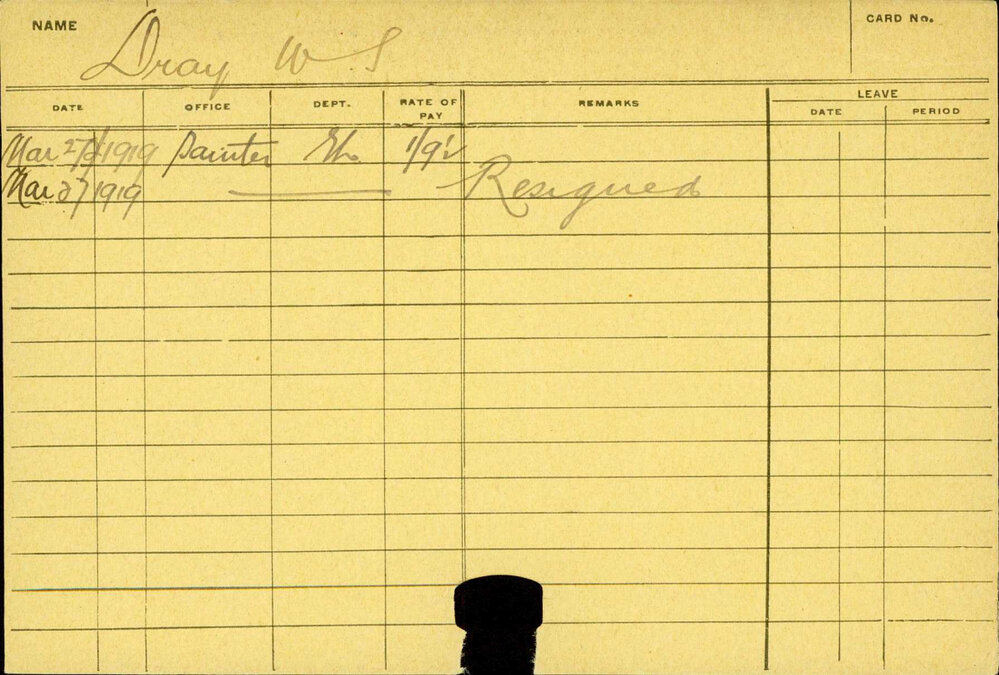 NAME Dray W S CARD No.
LEAVE
DATE OFFICE DEPT. RATE OF PAY REMARKS DATE PERIOD
Mar 1919 Painter 1/9½
Mar 27 1919 Resigned